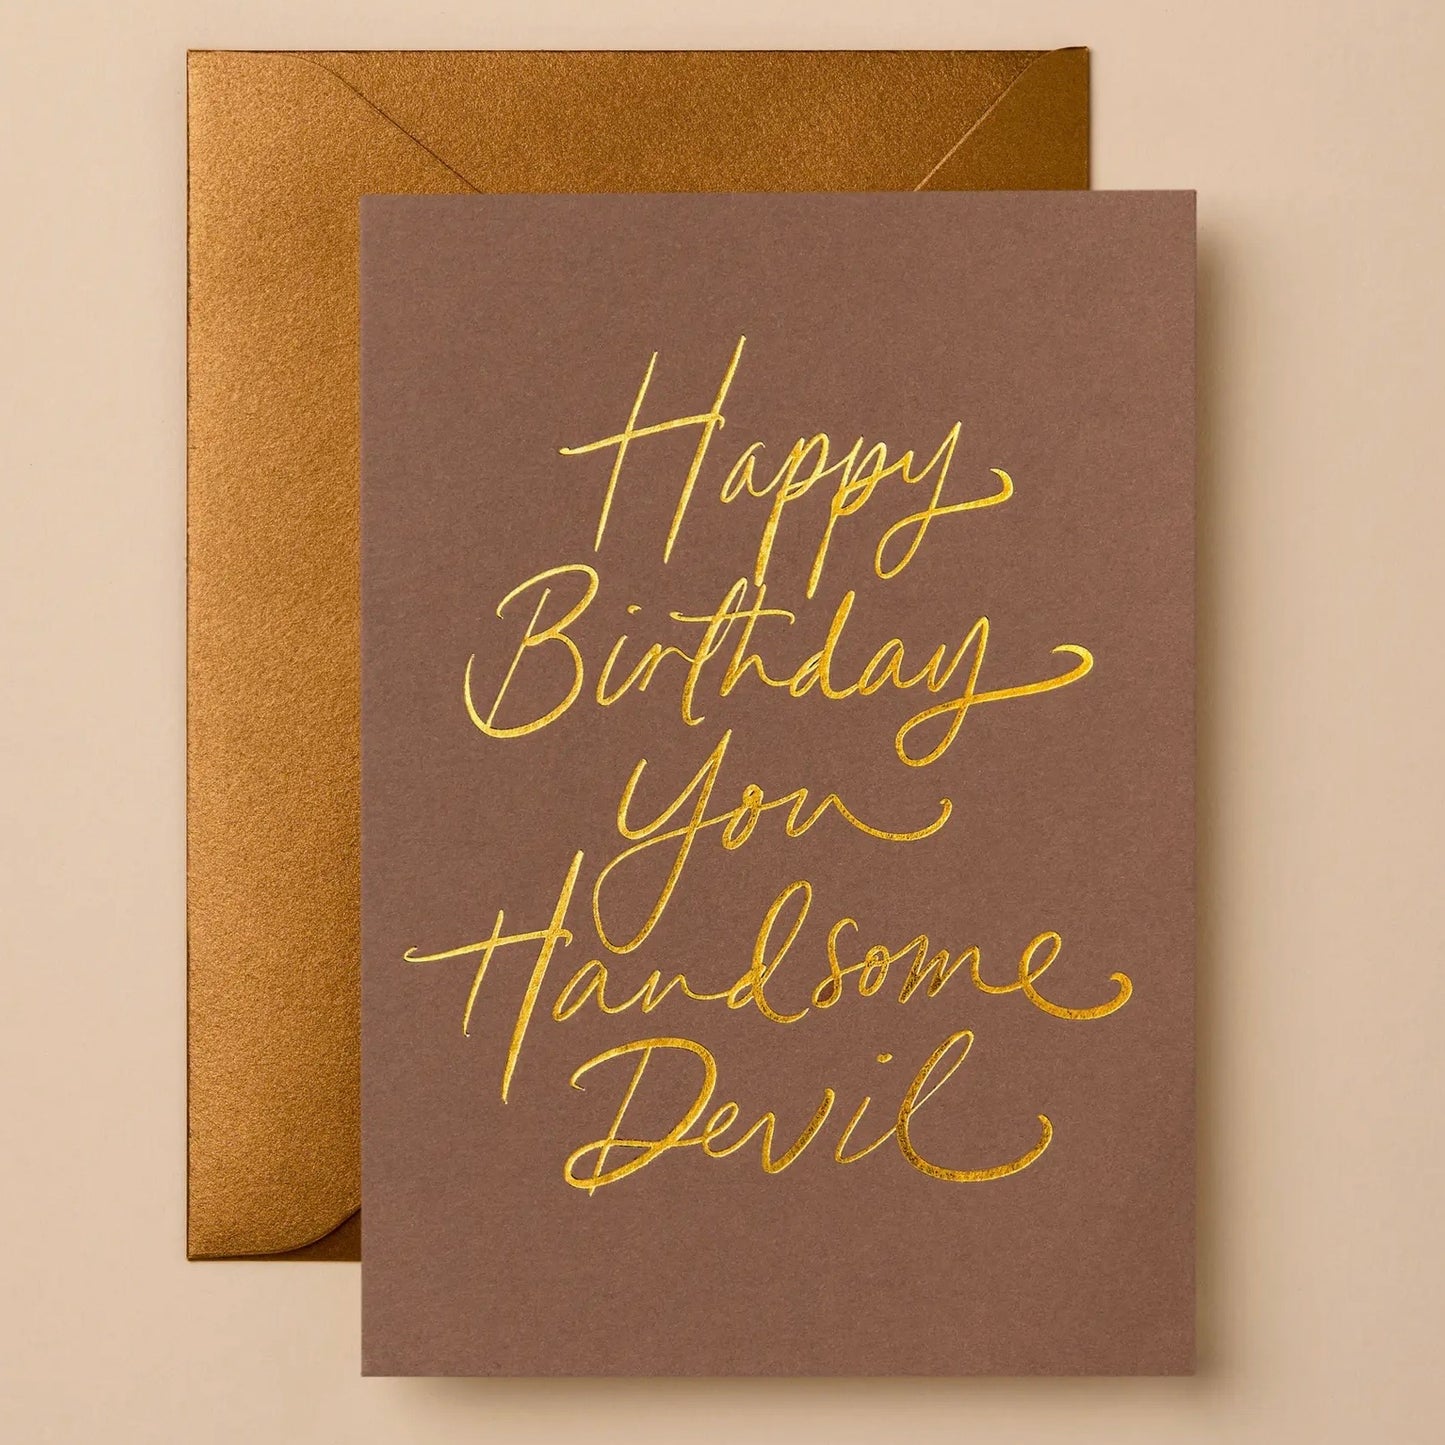 Happy
Birthday
you
Handsome
Devil